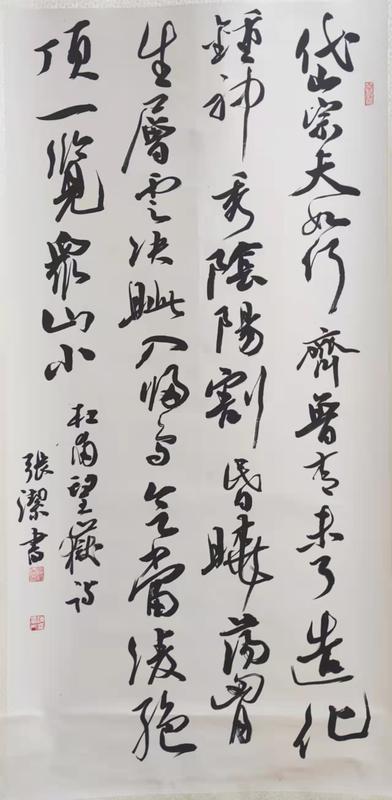 岱宗夫如何齊魯青未了造化
鍾神秀陰陽割昬曉蕩胷
生層雲決眦入歸鳥會當淩絶
頂一覽衆山小
杜甫望嶽詩
張潔書